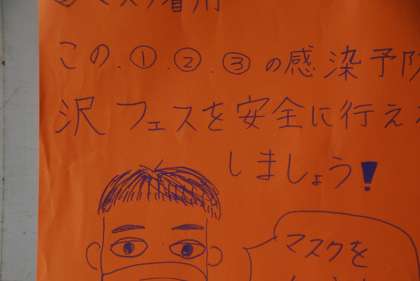 ③マスク着用
この.①.②.③の感染予防
沢フェスを安全に行え
しましょう！
マスクを